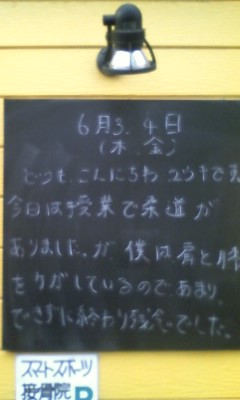 6月3.4日
(木.金)
どうも、こんにちわ ユウキです
今日は授業で柔道が
ありました。が、僕は肩と肘
をケガしているので、あまり
できずに終わり残念でした。
スマートスポーツ
接骨院 P